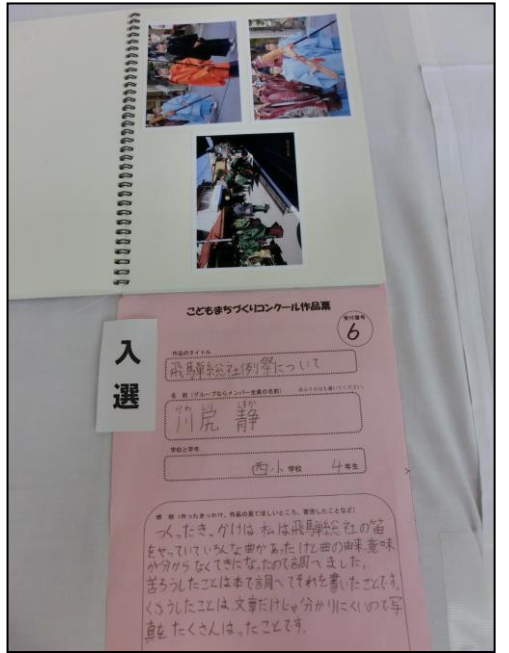 こどもまちづくりコンクール作品票
受付番号
6
入選
作品のタイトル
飛騨総社例祭について
名 前（グループならメンバー全員の名前）
※ふりがなも書いてください。
かわ しり しずか
川尻 静
学校と学年
西小 学校 4 年生
感 想（作ったきっかけ、作品の見てほしいところ、苦労したことなど）
つくったきっかけは 私は飛騨総社の笛
をやっていていろんな曲があったけど曲の由来、意味
が分からなくてきになったので調べました。
苦ろうしたことは本で調べてそれを書いたことです。
くふうしたことは、文章だけじゃ分かりにくいので写
真をたくさんはったことです。